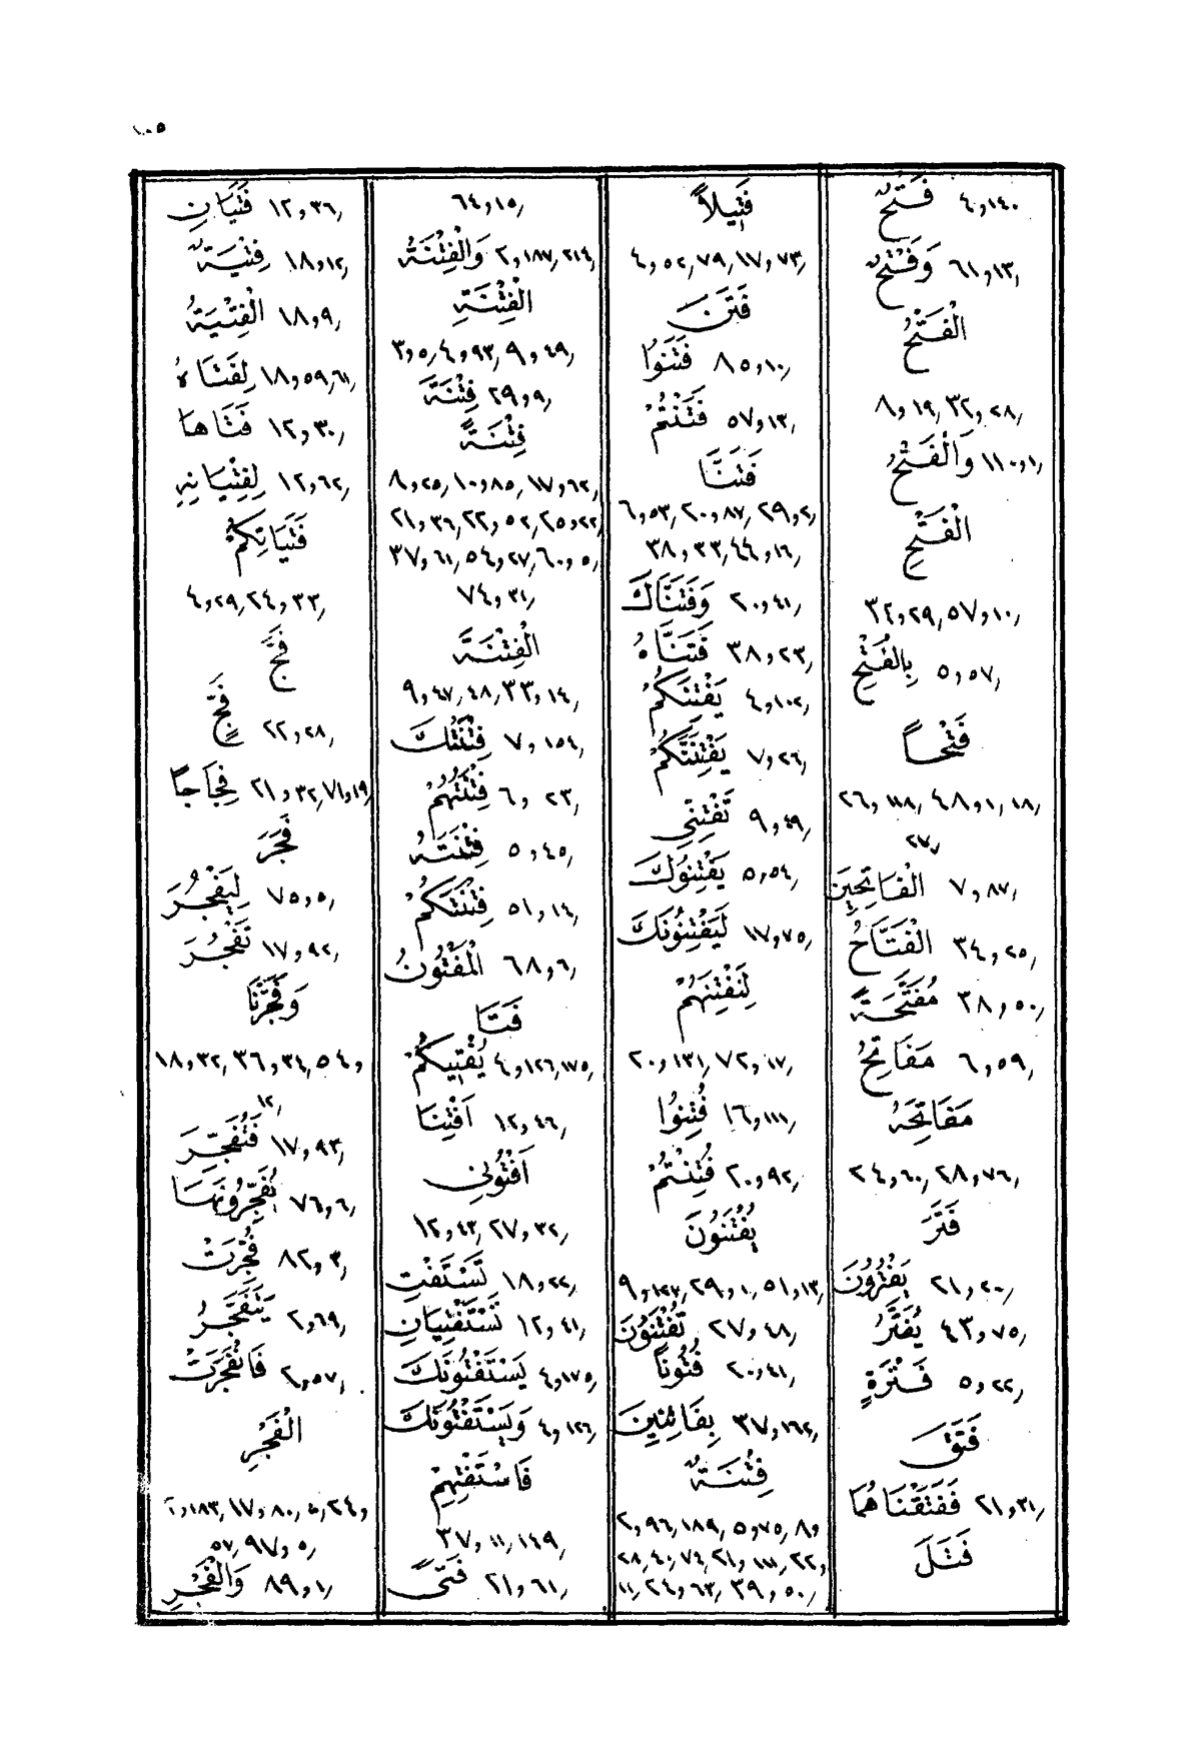 ١٠٥
فَتْحٌ ٤,١٤٠
وَفَتْحٌ ٦١,١٣
الْفَتْحُ
٨,١٩, ٣٢,٢٨
وَالْفَتْحُ ١١٠,١
الْفَتْحِ
٣٢,٢٩, ٥٧,١٠
بِالْفَتْحِ ٥,٥٧
فَتْحاً
٢٦,١١٨, ٤٨,١, ١٨
٢٧
الْفَاتِحِينَ ٧,٨٧
الْفَتَّاحُ ٣٤,٢٥
مُفَتَّحَةً ٣٨,٥٠
مَفَاتِحُ ٦,٥٩
مَفَاتِحَهُ
٢٤,٦٠, ٢٨,٧٦
فَتَرَ
يَفْتُرُونَ ٢١,٢٠
يُفَتَّرُ ٤٣,٧٥
فَتْرَةٍ ٥,٢٢
فَتَقَ
فَفَتَقْنَاهُمَا ٢١,٣١
فَتَلَ
فَتِيلاً
٤,٥٢, ٧٩, ١٧,٧٣
فَتَنَ
فَتَنُوا ٨٥,١٠
فَتَنْتُمْ ٥٧,١٣
فَتَنَّا
٦,٥٣, ٢٠,٨٧, ٢٩,٢
٣٨,٣٣, ٤٤,١٦
وَفَتَنَّاكَ ٢٠,٤١
فَتَنَّاهُ ٣٨,٢٣
يَفْتِنَكُمْ ٤,١٠٢
يَفْتِنَنَّكُمْ ٧,٢٦
تَفْتِنِّي ٩,٤٩
يَفْتِنُوكَ ٥,٥٤
لَيَفْتِنُونَكَ ١٧,٧٥
لِنَفْتِنَهُمْ
٢٠,١٣١, ٧٢,١٧
فُتِنُوا ١٦,١١١
فُتِنْتُمْ ٢٠,٩٢
يُفْتَنُونَ
٩,١٢٧, ٢٩,١, ٥١,١٣
تُفْتَنُونَ ٢٧,٤٨
فُتُوناً ٢٠,٤١
بِفَاتِنِينَ ٣٧,١٦٢
فِتْنَةٌ
٢,٩٦, ١٨٩, ٥,٧٥, ٨
٢٨,٤٠, ٧٤, ٢١,١١١, ٢٢
١١, ٢٤,٦٣, ٣٩,٥٠
٦٤,١٥
وَالْفِتْنَةُ ٢,١٨٧, ٢١٤
الْفِتْنَةِ
٣,٥, ٤,٩٣, ٩,٤٩
فِتْنَةَ ٢٩,٩
فِتْنَةً
٨,٢٥, ١٠,٨٥, ١٧,٦٢
٢١,٣٦, ٢٢,٥٢, ٢٥,٢٢
٣٧,٦١, ٥٤,٢٧, ٦٠,٥
٧٤,٣١
الْفِتْنَةَ
٩,٤٧, ٤٨, ٣٣,١٤
فِتْنَتُكَ ٧,١٥٤
فِتْنَتُهُمْ ٦,٢٣
فِتْنَتَهُ ٥,٤٥
فِتْنَتَكُمْ ٥١,١٤
الْمَفْتُونُ ٦٨,٦
فَتَا
يُفْتِيكُمْ ٤,١٢٦, ١٧٥
اَفْتِنَا ١٢,٤٦
اَفْتُونِي
١٢,٤٣, ٢٧,٣٢
تَسْتَفْتِ ١٨,٢٢
تَسْتَفْتِيَانِ ١٢,٤١
يَسْتَفْتُونَكَ ٤,١٧٥
وَيَسْتَفْتُونَكَ ٤,١٢٦
فَاسْتَفْتِهِمْ
٣٧,١١, ١٤٩
فَتًى ٢١,٦١
فَتَيَانِ ١٢,٣٦
فِتْيَةٌ ١٨,١٢
الْفِتْيَةُ ١٨,٩
لِفَتَاهُ ١٨,٥٩, ٦١
فَتَاهَا ١٢,٣٠
لِفِتْيَانِهِ ١٢,٦٢
فَتَيَاتِكُمْ
٤,٢٩, ٢٤,٣٣
فَجَّ
فَجٍّ ٢٢,٢٨
فِجَاجاً ٢١,٣٢, ٧١,١٩
فَجَرَ
لِيَفْجُرَ ٧٥,٥
تَفْجُرَ ١٧,٩٢
وَفَجَّرْنَا
١٨,٣٢, ٣٦,٣٤, ٥٤
١٢
فَتُفَجِّرَ ١٧,٩٣
يُفَجِّرُونَهَا ٧٦,٦
فُجِّرَتْ ٨٢,٣
يَتَفَجَّرُ ٢,٦٩
فَانْفَجَرَتْ ٢,٥٧
الْفَجْرِ
٢,١٨٣, ١٧,٨٠, ٢٤
٥٧, ٩٧,٥
وَالْفَجْرِ ٨٩,١